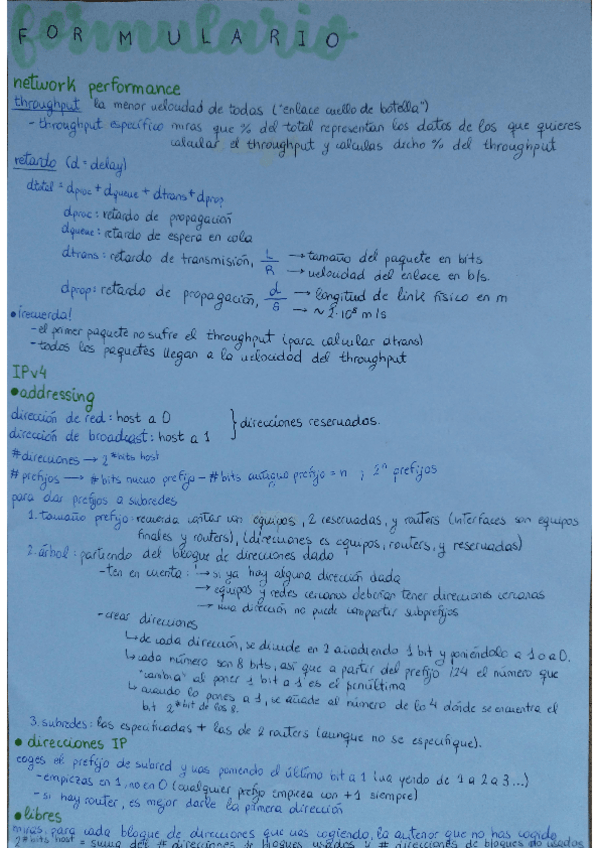 formulario
FORMULARIO
network performance
throughput la menor velocidad de todas ("enlace cuello de botella")
- throughput específico miras que % del total representan los datos de los que quieres
calcular el throughput y calculas dicho % del throughput
retardo (d = delay)
dtotal = dproc + dqueue + dtrans + dprop
dproc: retardo de propagación
dqueue: retardo de espera en cola
dtrans: retardo de transmisión, L/R → tamaño del paquete en bits
→ velocidad del enlace en b/s.
dprop: retardo de propagación, d/s → longitud de link físico en m
→ ~ 2·10⁸ m/s
• ¡recuerda!
- el primer paquete no sufre el throughput (para calcular dtrans)
- todos los paquetes llegan a la velocidad del throughput
IPv4
• addressing
dirección de red: host a 0
} direcciones reservadas.
dirección de broadcast: host a 1
#direcciones → 2^#bits host
#prefijos → #bits nuevo prefijo - #bits antiguo prefijo = n ; 2ⁿ prefijos
para dar prefijos a subredes
1. tamaño prefijo: recuerda contar con equipos, 2 reservadas, y routers (interfaces son equipos
finales y routers), (direcciones es equipos, routers, y reservadas)
2. árbol: partiendo del bloque de direcciones dado
- ten en cuenta: → si ya hay alguna dirección dada
→ equipos y redes cercanos deberían tener direcciones cercanas
→ una dirección no puede compartir subprefijos
- crear direcciones
↳ de cada dirección, se divide en 2 añadiendo 1 bit y poniéndolo a 1 o a 0.
↳ cada número son 8 bits, así que a partir del prefijo /24 el número que
"cambia" al poner 1 bit a 1 es el penúltimo
↳ cuando lo pones a 1, se añade al número de los 4 donde se encuentra el
bit 2^#bit de los 8.
3. subredes: las especificadas + las de 2 routers (aunque no se especifique).
• direcciones IP
coges el prefijo de subred y vas poniendo el último bit a 1 (va yendo de 1 a 2 a 3...)
- empiezas en 1, no en 0 (cualquier prefijo empieza con +1 siempre)
- si hay router, es mejor darle la primera dirección
• libres
miras, para cada bloque de direcciones que vas cogiendo, la anterior que no has cogido
2^#bits host = suma del # direcciones de bloques usados y # direcciones de bloques no usados